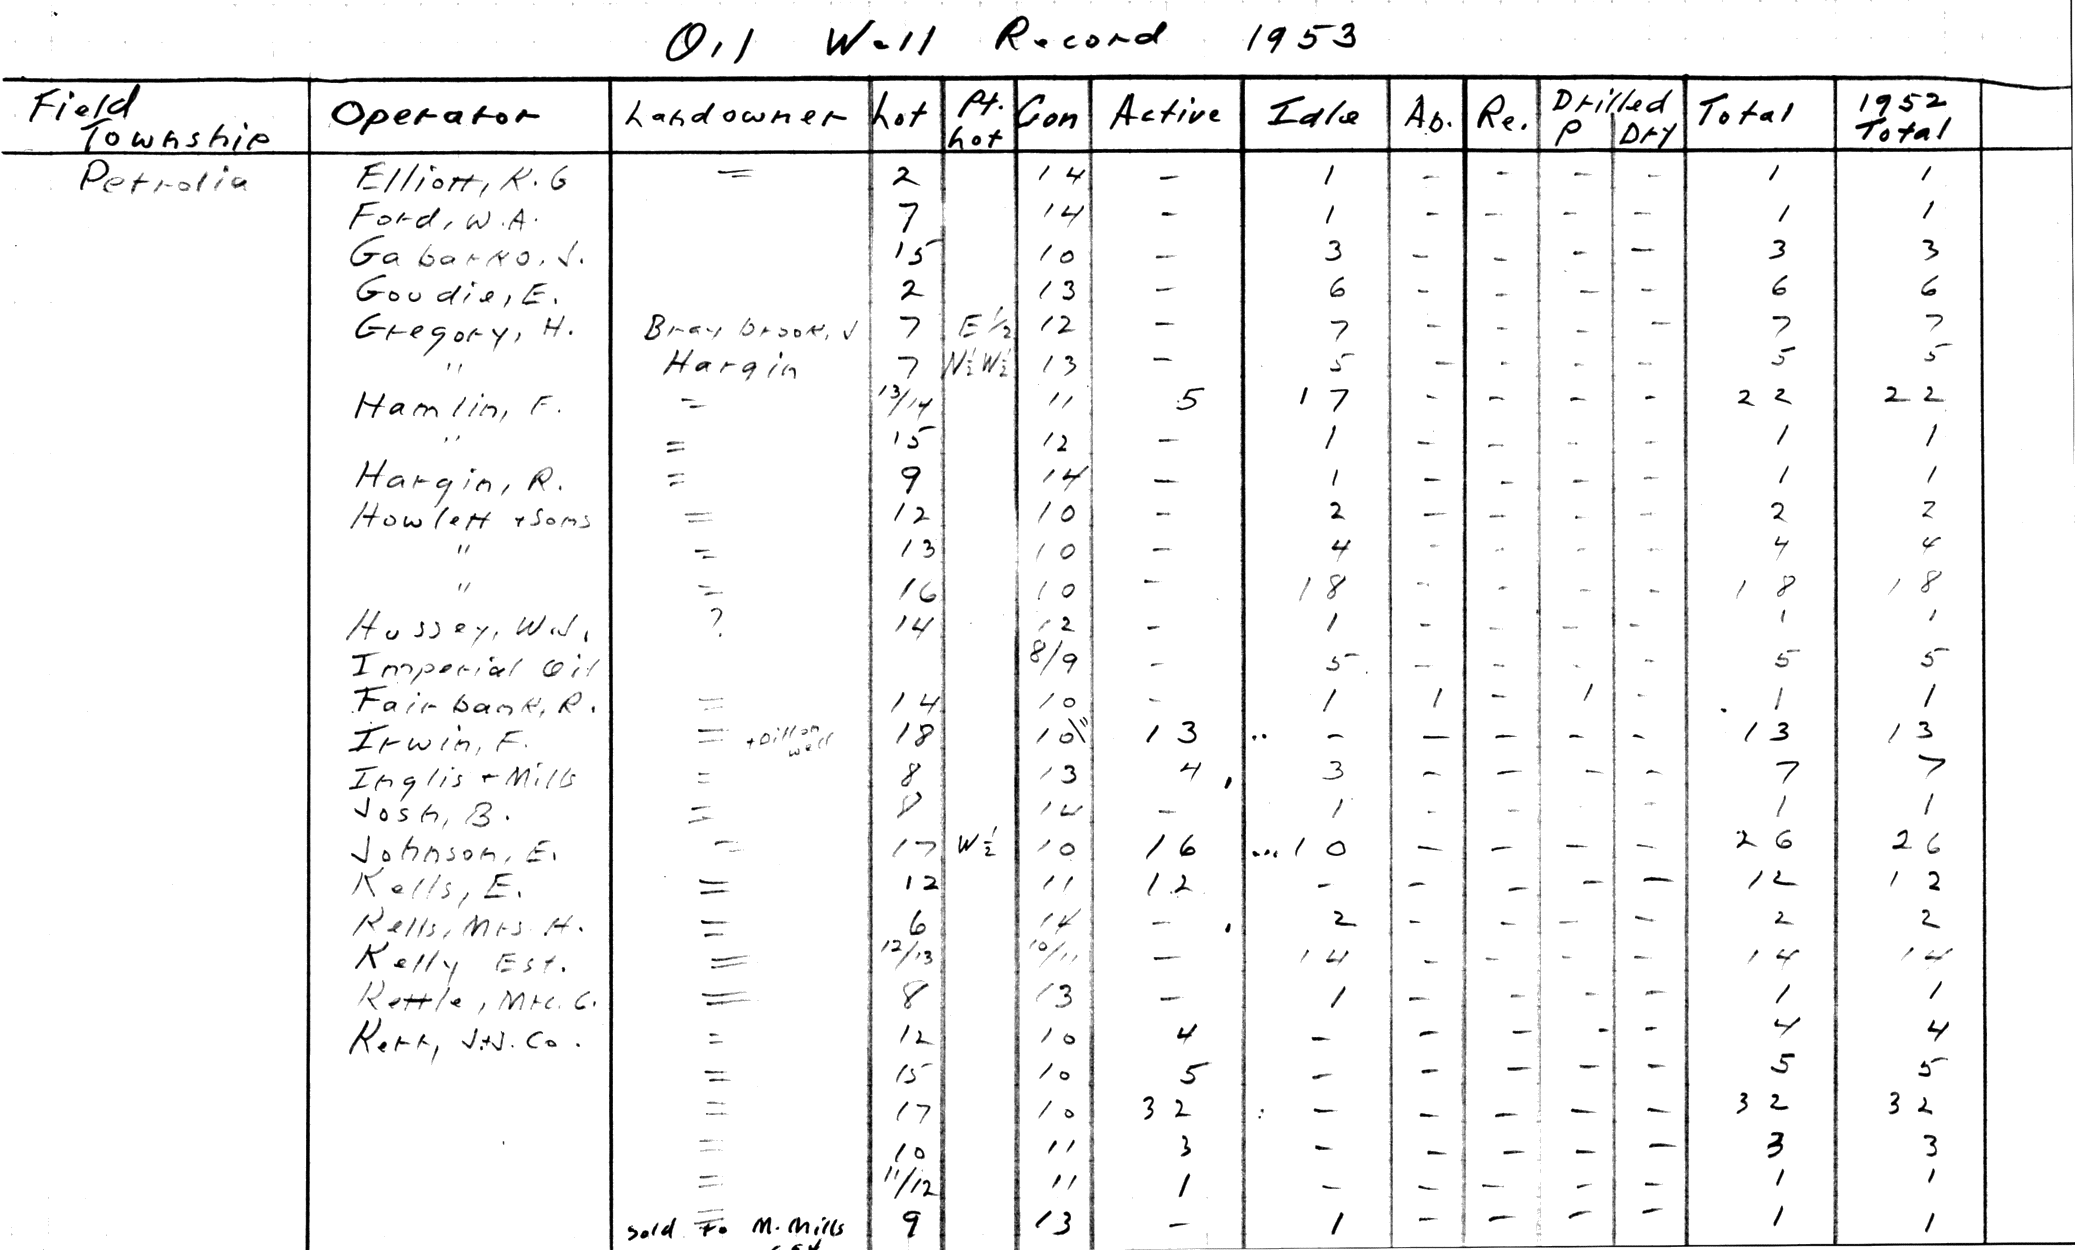 Oil Well Record 1953
Field Township Operator Landowner Lot Pt. Lot Con Active Idle Ab. Re. Drilled P Dry Total 1952 Total
Petrolia Elliott, K. G = 2 14 - 1 - - - - 1 1
Ford, W. A. 7 14 - 1 - - - - 1 1
Gabarko, J. 15 10 - 3 - - - - 3 3
Goudie, E. 2 13 - 6 - - - - 6 6
Gregory, H. Braybrook, J 7 E ½ 12 - 7 - - - - 7 7
" Hargin 7 N½ W½ 13 - 5 - - - - 5 5
Hamlin, F. = 13/14 11 5 17 - - - - 22 22
" = 15 12 - 1 - - - - 1 1
Hargin, R. = 9 14 - 1 - - - - 1 1
Howlett + Sons = 12 10 - 2 - - - - 2 2
" = 13 10 - 4 - - - - 4 4
" = 16 10 - 18 - - - - 18 18
Hussey, W.J. ? 14 12 - 1 - - - - 1 1
Imperial Oil 8/9 - 5 - - - - 5 5
Fairbank, R. = 14 10 - 1 1 - 1 - 1 1
Irwin, F. = + Dillon well 18 10/11 13 - - - - - 13 13
Inglis + Mills = 8 13 4 3 - - - - 7 7
Josh, B. = 8 14 - 1 - - - - 1 1
Johnson, E. = 17 W ½ 10 16 10 - - - - 26 26
Kells, E. = 12 11 12 - - - - - 12 12
Kells, Mrs. H. = 6 14 - 2 - - - - 2 2
Kelly Est. = 12/13 10/11 - 14 - - - - 14 14
Kettle, Mrs. C. = 8 13 - 1 - - - - 1 1
Kerr, J.N. Co. = 12 10 4 - - - - - 4 4
= 15 10 5 - - - - - 5 5
= 17 10 32 - - - - - 32 32
= 10 11 3 - - - - - 3 3
= 11/12 11 1 - - - - - 1 1
= Sold To M. Mills 9 13 - 1 - - - - 1 1